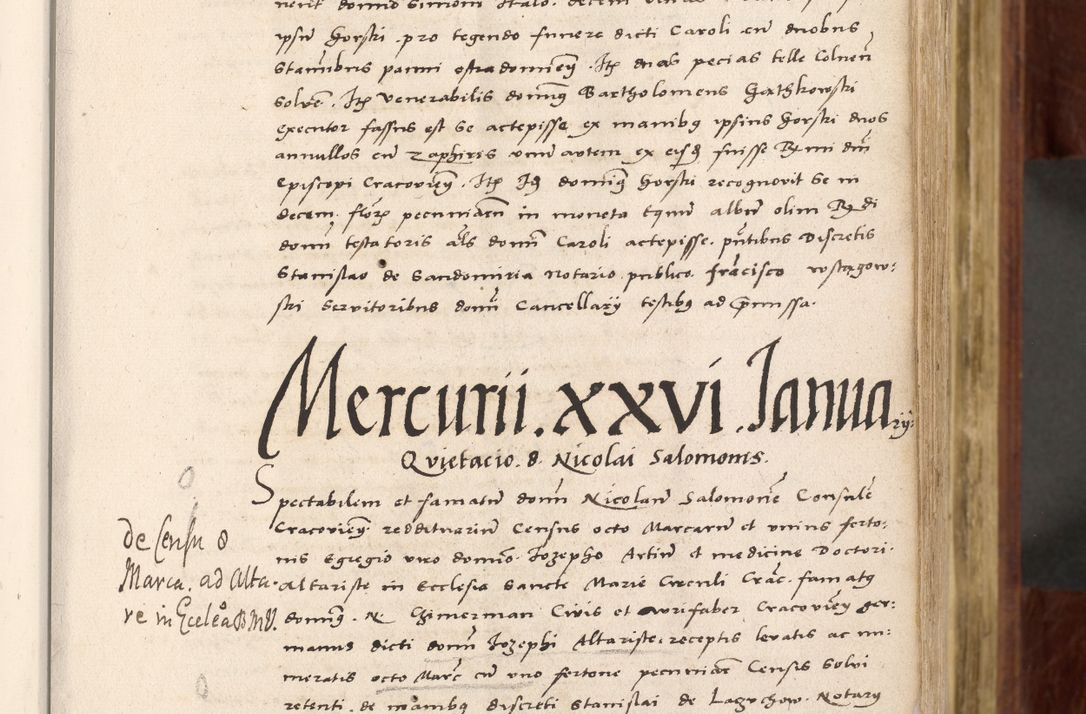 ipsū Horski pro tegendo funere dicti Caroli cū duobus
Stamībus panni ostradomieñ. Itē duas pecias telle Colneñ
Solvē. Itē Venerabilis domīq Bartholomeus Gathkowski
executor fassus est se actepisse ex manibq ipsius Horski duos
annullos cū zaphiris unū autem ex eisdē fuisse Rmi dñi
Episcopi Cracovieñ. Itē Idē domīq Horski recognovit se in
decem florz pecuniarū in moneta equū albū olim Rdi
domī testatoris als domī Caroli actepisse. pñtibus Discretis
Stanislao de Sandomiria notario publico frācisco
ski Servitoribus domī Cancellarÿ testibq ad pmissa.
Mercurii . xxvi . Ianuarÿ.
Quietacio. d. Nicolai Salomonis.
Spectabilem et famatū domī Nicolaū Salomonē Consulē
Cracovieñ. reddituariū Census octo Marcarū et unius ferto:
nis Egregio viro domīo. Iozepho Artiū et medicine Doctori.
Altariste in Ecclesia Sancte Marie Circuli Crac. famatq
domīq. N. Czimerman Civis et Aurifaber Cracovieñ ger:
manus dicti domī Iozephi Altariste. receptis levatis ac nu:
meratis octo Marc cū uno fertone pecuniarū Census Solvi
retenti. de manibq discreti Stanislai de Lagychow. Notarÿ
de Censu 8
Marca. ad Alta
re in Eccleā B M V.